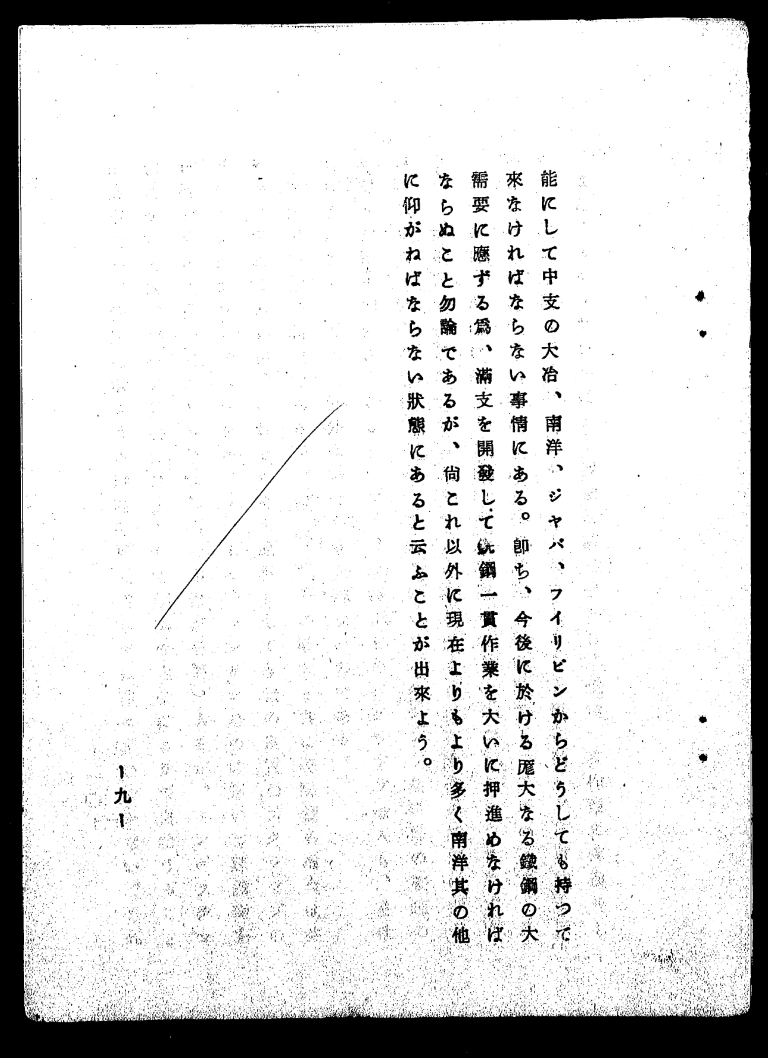 能にして中支の大冶、南洋、ジヤバ、フイリピンからどうしても持つて
來なければならない事情にある。卽ち、今後に於ける厖大なる鐵鋼の大
需要に應ずる爲、滿支を開發して銑鋼一貫作業を大いに押進めなければ
ならぬこと勿論であるが、尙これ以外に現在よりもより多く南洋其の他
に仰がねばならない狀態にあると云ふことが出來よう。
ー九ー